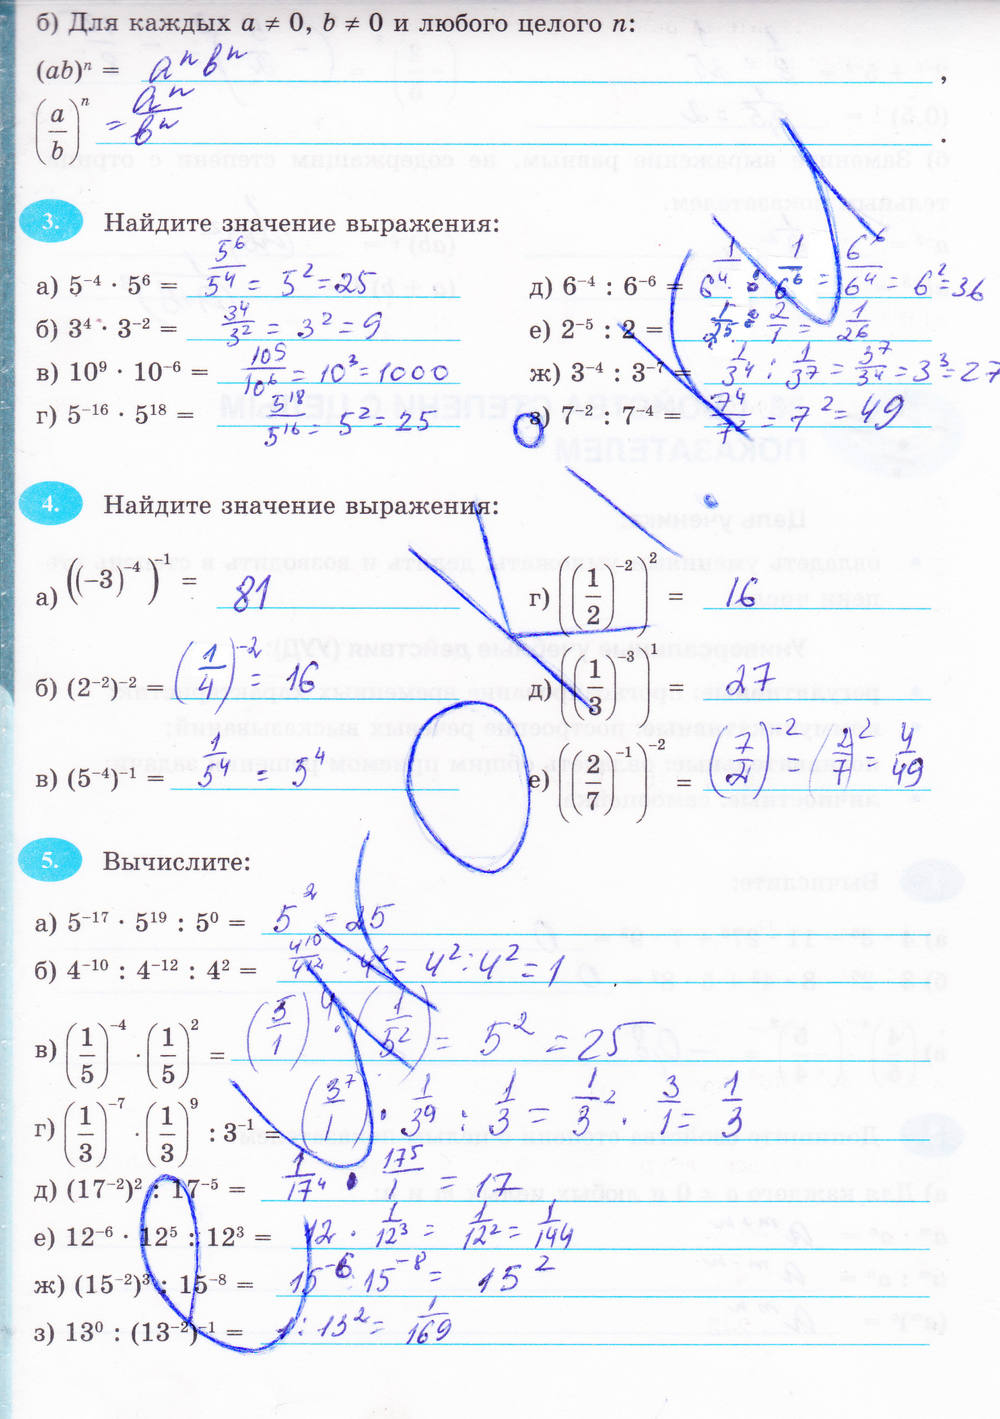 б) Для каждых a ≠ 0, b ≠ 0 и любого целого n:
(ab)ⁿ = aⁿ bⁿ ,
(a/b)ⁿ = aⁿ/bⁿ .
3. Найдите значение выражения:
а) 5⁻⁴ · 5⁶ = 5⁶/5⁴ = 5² = 25
б) 3⁴ · 3⁻² = 3⁴/3² = 3² = 9
в) 10⁹ · 10⁻⁶ = 10⁹/10⁶ = 10³ = 1000
г) 5⁻¹⁶ · 5¹⁸ = 5¹⁸/5¹⁶ = 5² = 25
д) 6⁻⁴ : 6⁻⁶ = 1/6⁴ : 1/6⁶ = 6⁶/6⁴ = 6² = 36
е) 2⁻⁵ : 2 = 1/2⁵ : 2/1 = 1/2⁶
ж) 3⁻⁴ : 3⁻⁷ = 1/3⁴ : 1/3⁷ = 3⁷/3⁴ = 3³ = 27
з) 7⁻² : 7⁻⁴ = 7⁴/7² = 7² = 49
4. Найдите значение выражения:
а) ((−3)⁻⁴)⁻¹ = 81
б) (2⁻²)⁻² = (1/4)⁻² = 16
в) (5⁻⁴)⁻¹ = 1/5⁴ = 5⁴
г) ((1/2)⁻²)² = 16
д) ((1/3)⁻³)¹ = 27
е) ((2/7)⁻¹)⁻² = (7/2)⁻² = (2/7)² = 4/49
5. Вычислите:
а) 5⁻¹⁷ · 5¹⁹ : 5⁰ = 5² = 25
б) 4⁻¹⁰ : 4⁻¹² : 4² = 4¹⁰/4¹² : 4² = 4² : 4² = 1
в) (1/5)⁻⁴ · (1/5)² = (5/1)⁴ · (1/5²) = 5² = 25
г) (1/3)⁻⁷ · (1/3)⁹ : 3⁻¹ = (3⁷/1) · 1/3⁹ : 1/3 = 1/3² · 3/1 = 1/3
д) (17⁻²)² : 17⁻⁵ = 1/17⁴ · 17⁵/1 = 17
е) 12⁻⁶ · 12⁵ : 12³ = 12 · 1/12³ = 1/12² = 1/144
ж) (15⁻²)³ : 15⁻⁸ = 15⁻⁶ : 15⁻⁸ = 15²
з) 13⁰ : (13⁻²)⁻¹ = 1 : 13² = 1/169